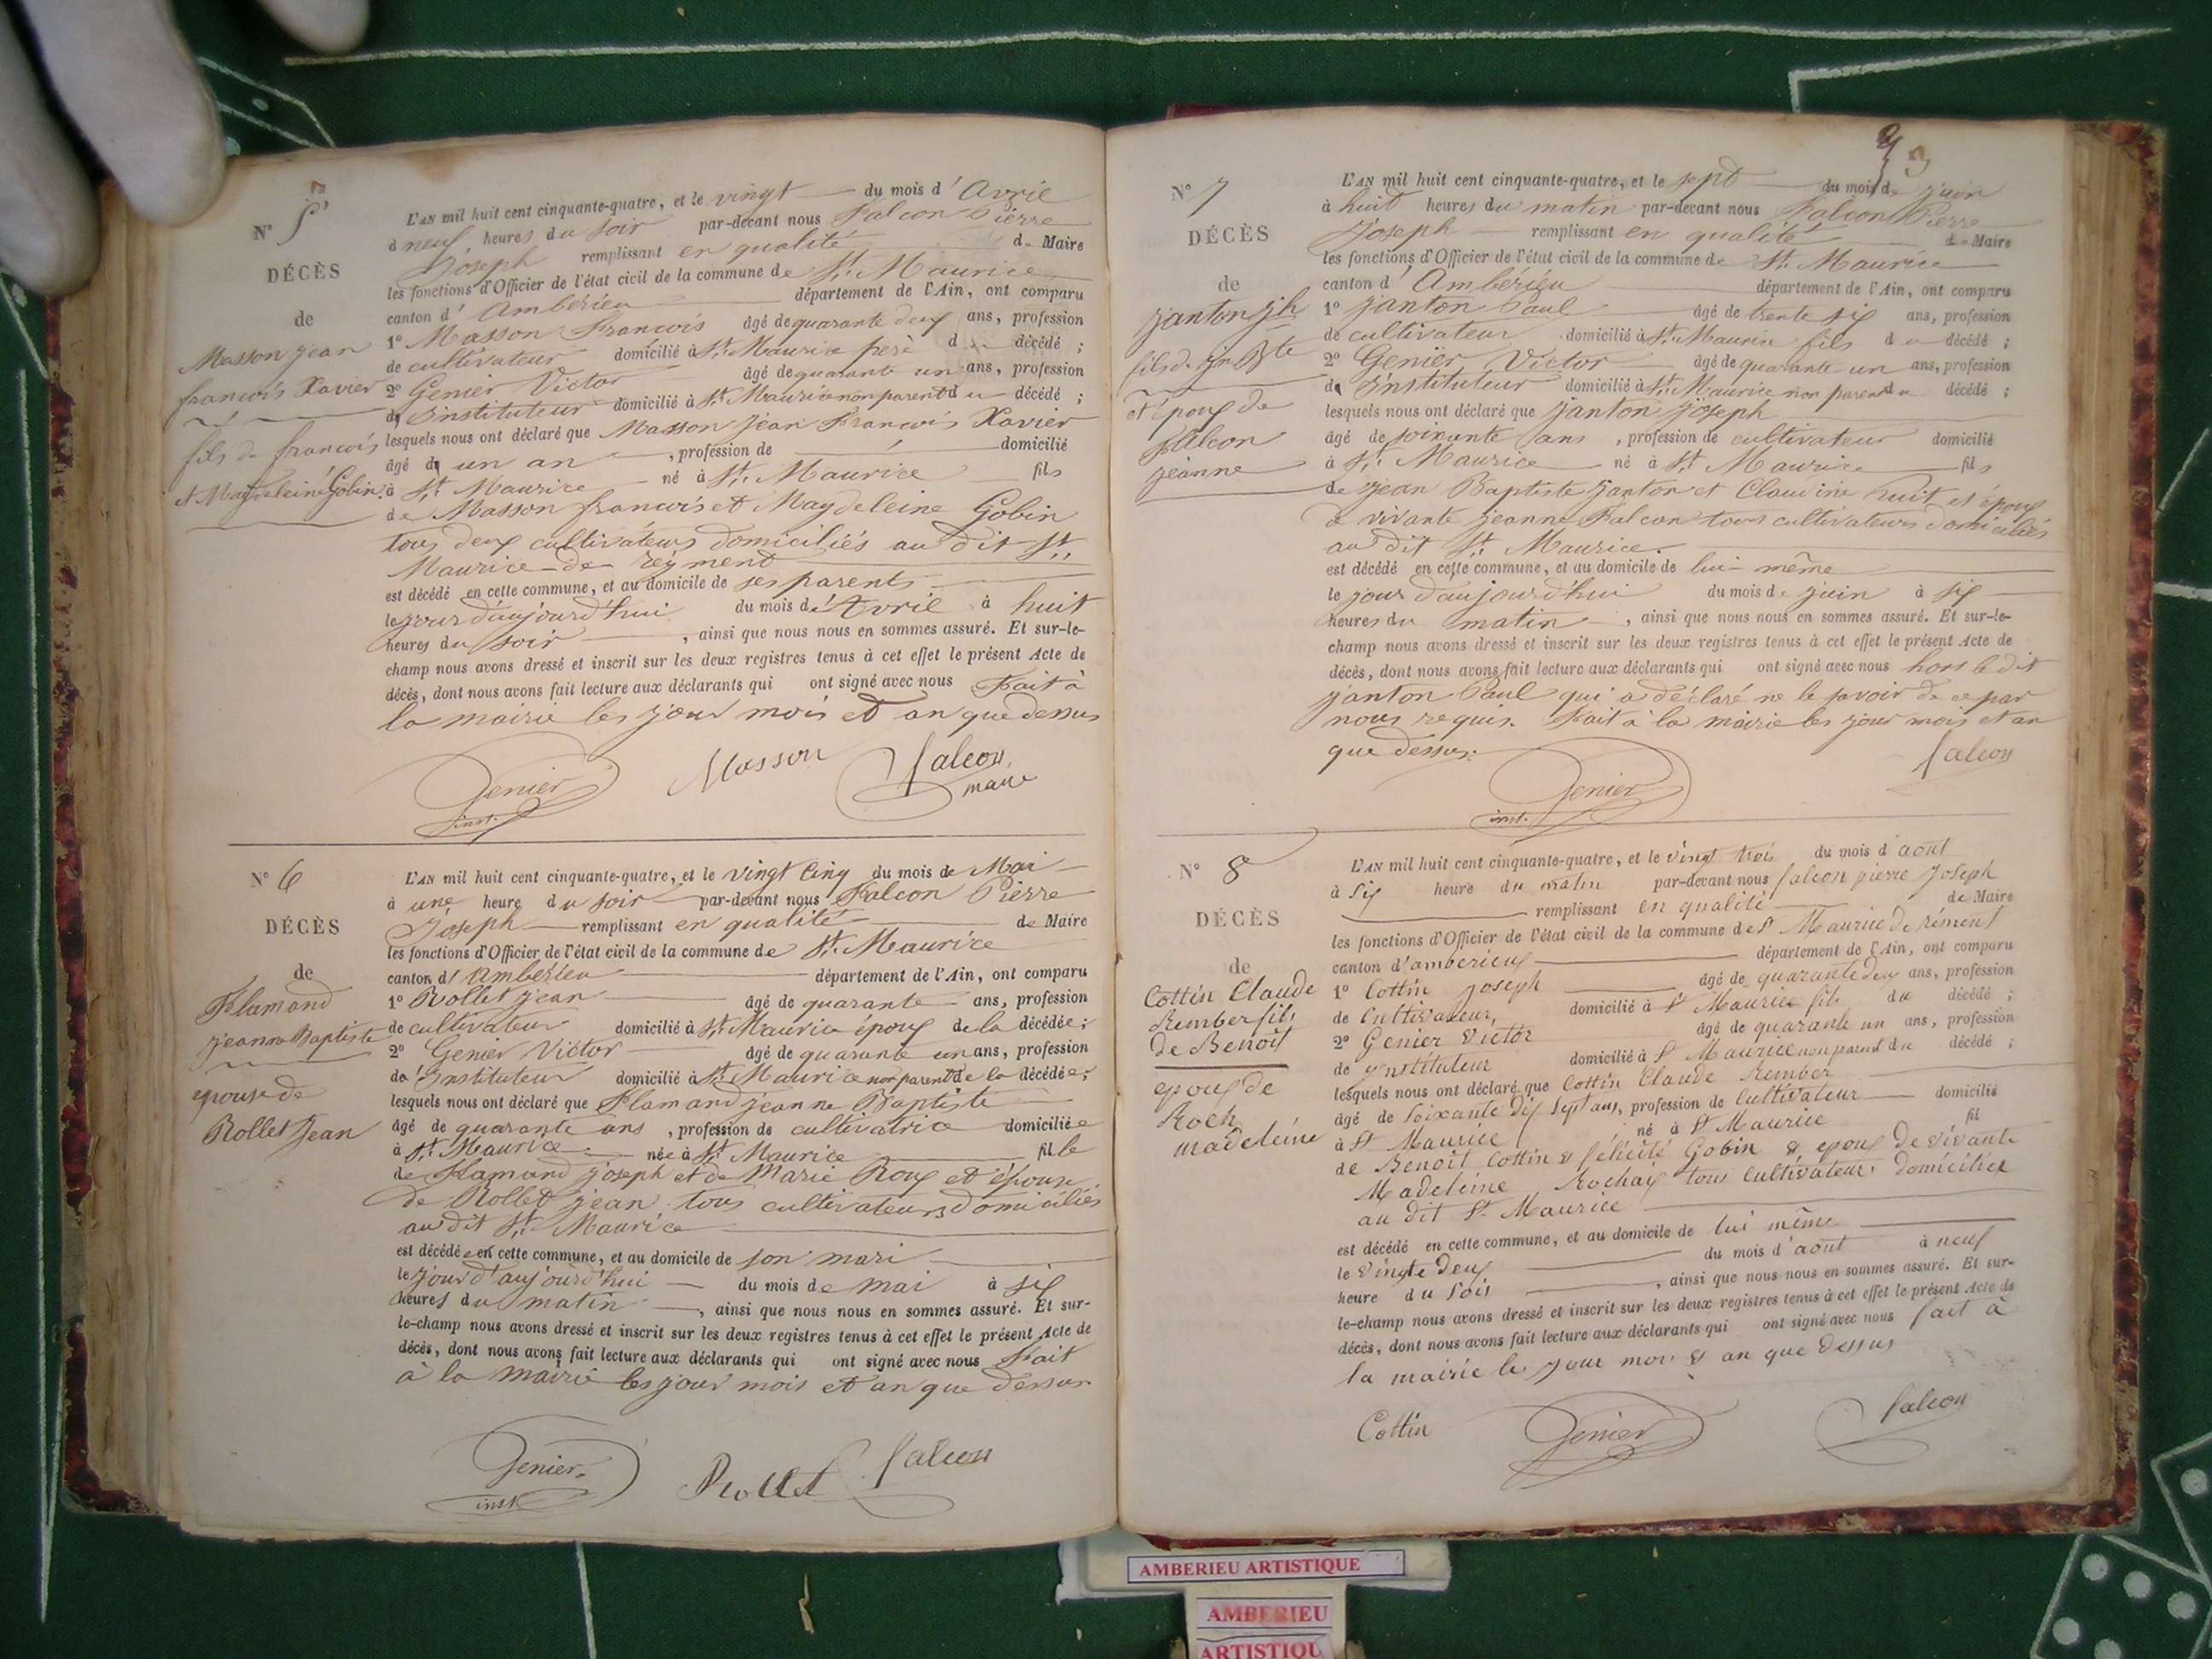 N° 5
DÉCÈS
de
Masson jean
françois Xavier
fils de françois
et Magdeleine Gobin
L'AN mil huit cent cinquante-quatre, et le vingt du mois d'Avril
à neuf heures du soir par-devant nous Falcon Pierre
Joseph remplissant en qualité de Maire
les fonctions d'Officier de l'état civil de la commune de St. Maurice
canton d'Ambérieu département de l'Ain, ont comparu
1° Masson François âgé de quarante deux ans, profession
de cultivateur domicilié à St. Maurice père d décédé ;
2° Genier Victor âgé de quarante un ans, profession
d'Instituteur domicilié à St. Maurice non parent du décédé ;
lesquels nous ont déclaré que Masson jean François Xavier
âgé d'un an , profession de domicilié
à St. Maurice né à St. Maurice fils
de Masson françois et Magdeleine Gobin
tous deux cultivateurs domiciliés au dit St.
Maurice-de-rément
est décédé en cette commune, et au domicile de ses parents
le jour d'aujourd'hui du mois d'Avril à huit
heures du soir , ainsi que nous nous en sommes assuré. Et sur-le-
champ nous avons dressé et inscrit sur les deux registres tenus à cet effet le présent Acte de
décès, dont nous avons fait lecture aux déclarants qui ont signé avec nous Fait à
la mairie les jour mois et an que dessus
Genier inst. Masson Falcon maire
N° 6
DÉCÈS
de
Flamand
jeanne Baptiste
epouse de
Rollet Jean
L'AN mil huit cent cinquante-quatre, et le vingt cinq du mois de Mai
à une heure du soir par-devant nous Falcon Pierre
Joseph remplissant en qualité de Maire
les fonctions d'Officier de l'état civil de la commune de St. Maurice
canton d'Ambérieu département de l'Ain, ont comparu
1° Rollet jean âgé de quarante ans, profession
de cultivateur domicilié à St. Maurice époux de la décédée ;
2° Genier Victor âgé de quarante un ans, profession
d'Instituteur domicilié à St. Maurice non parent de la décédée ;
lesquels nous ont déclaré que Flamand jeanne Baptiste
âgé de quarante ans , profession de cultivatrice domiciliée
à St. Maurice née à St. Maurice fille
de Flamand joseph et de Marie Roux et épouse
de Rollet jean tous cultivateurs domiciliés
au dit St. Maurice
est décédée en cette commune, et au domicile de son mari
le jour d'aujourd'hui du mois de mai à six
heures du matin , ainsi que nous nous en sommes assuré. Et sur-
le-champ nous avons dressé et inscrit sur les deux registres tenus à cet effet le présent Acte de
décès, dont nous avons fait lecture aux déclarants qui ont signé avec nous Fait
à la mairie les jour mois et an que dessus
Genier inst Rollet Falcon
N° 7
DÉCÈS
de
janton jh
fils de jn Bte
et époux de
falcon
jeanne
L'AN mil huit cent cinquante-quatre, et le sept du mois de juin
à huit heures du matin par-devant nous Falcon Pierre
Joseph remplissant en qualité de Maire
les fonctions d'Officier de l'état civil de la commune de St. Maurice
canton d'Ambérieu département de l'Ain, ont comparu
1° janton Paul âgé de trente six ans, profession
de cultivateur domicilié à St. Maurice fils du décédé ;
2° Genier Victor âgé de quarante un ans, profession
d'Instituteur domicilié à St. Maurice non parent du décédé ;
lesquels nous ont déclaré que janton joseph
âgé de soixante ans , profession de cultivateur domicilié
à St. Maurice né à St. Maurice fils
de jean Baptiste janton et Claudine huit et époux
de vivante jeanne Falcon tous cultivateurs domiciliés
au dit St. Maurice.
est décédé en cette commune, et au domicile de lui-même
le jour d'aujourd'hui du mois de juin à six
heures du matin , ainsi que nous nous en sommes assuré. Et sur-le-
champ nous avons dressé et inscrit sur les deux registres tenus à cet effet le présent Acte de
décès, dont nous avons fait lecture aux déclarants qui ont signé avec nous hors le dit
janton Paul qui a déclaré ne le savoir de ce par
nous requis. Fait à la mairie les jour mois et an
que dessus.
Genier inst. Falcon
N° 8
DÉCÈS
de
Cottin Claude
Rember fils
de Benoit
epoux de
Roch
madeleine
L'AN mil huit cent cinquante-quatre, et le vingt trois du mois d'aout
à six heure du matin par-devant nous falcon pierre Joseph
remplissant en qualité de Maire
les fonctions d'Officier de l'état civil de la commune de St Maurice de rément
canton d'amberieux département de l'Ain, ont comparu
1° Cottin Joseph âgé de quarante deux ans, profession
de Cultivateur, domicilié à St Maurice fils du décédé ;
2° Genier Victor âgé de quarante un ans, profession
de ynstituteur domicilié à St Maurice non parent du décédé ;
lesquels nous ont déclaré que Cottin Claude Rember
âgé de soixante dix sept ans, profession de Cultivateur domicilié
à St Maurice né à St Maurice fil
de Benoit Cottin & félicité Gobin & epoux de vivante
Madeleine Rochaix tous Cultivateurs domicilier
au dit St Maurice
est décédé en cette commune, et au domicile de lui même
le vingte deux du mois d'aout à neuf
heure du soir , ainsi que nous nous en sommes assuré. Et sur-
le-champ nous avons dressé et inscrit sur les deux registres tenus à cet effet le présent Acte de
décès, dont nous avons fait lecture aux déclarants qui ont signé avec nous fait à
la mairie les jour mois & an que dessus
Cottin Genier Falcon
AMBERIEU ARTISTIQUE
AMBERIEU
ARTISTIQU